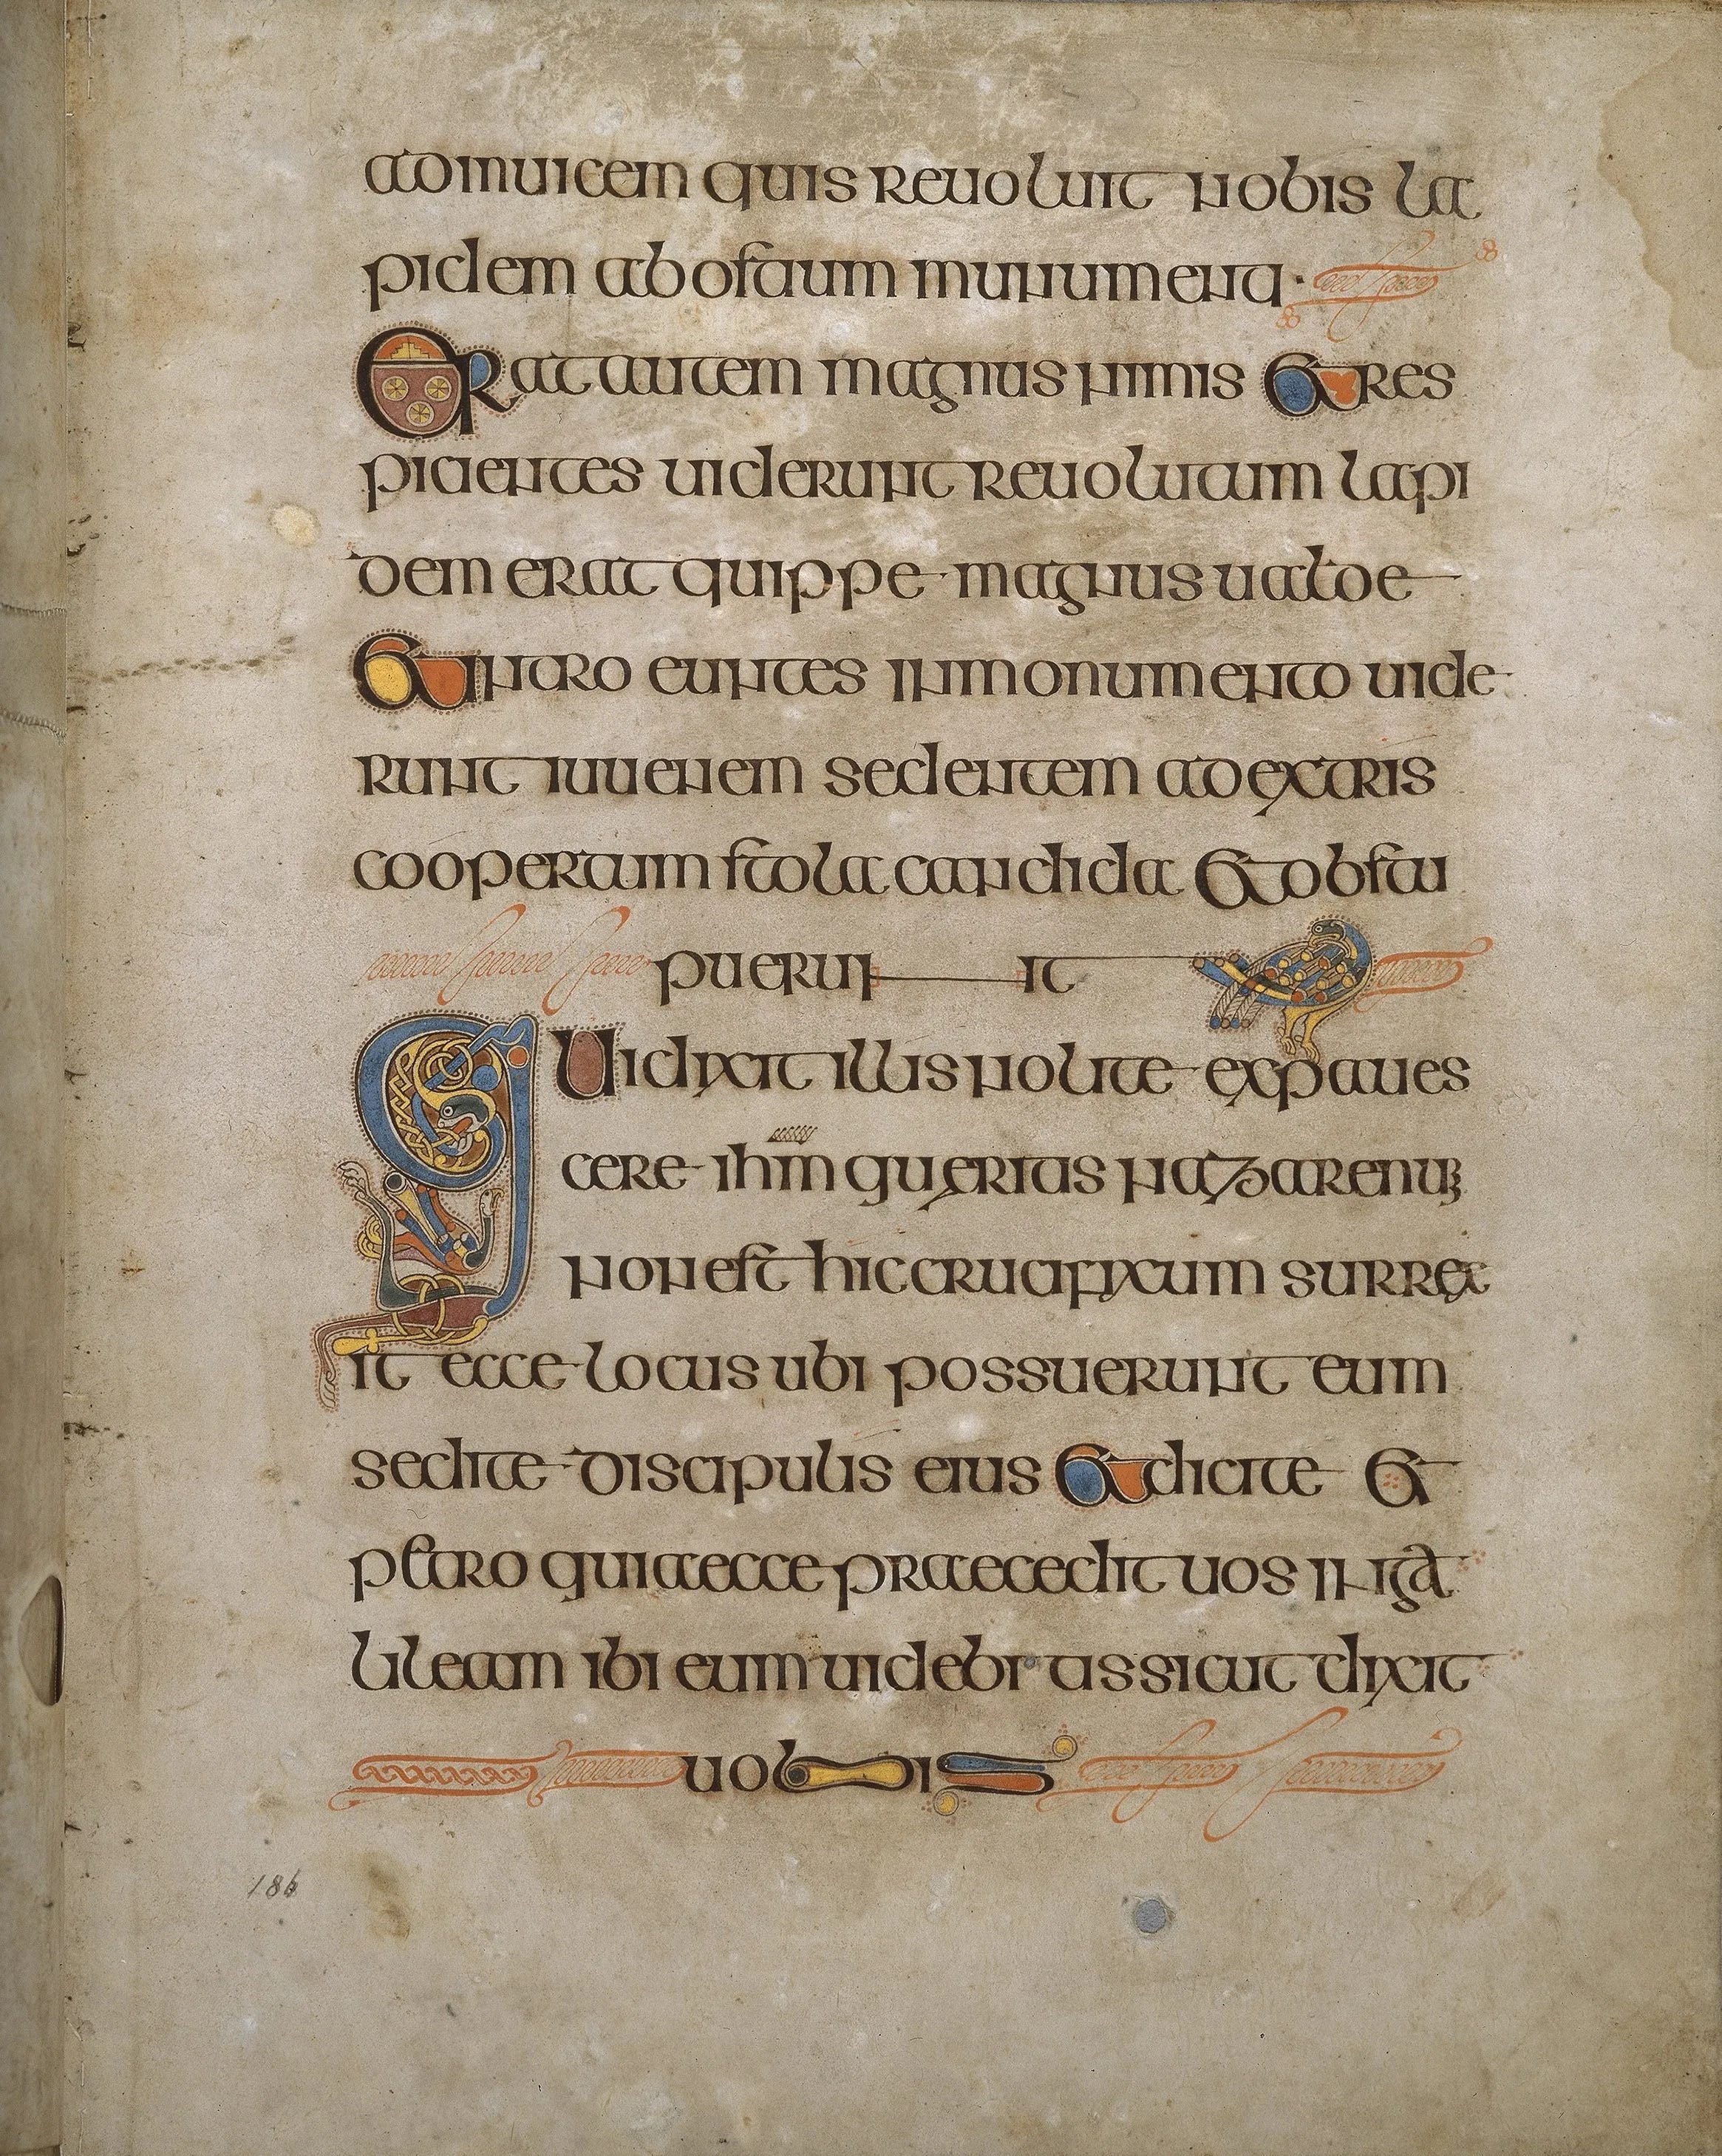 adinuicem quis reuoluit nobis la
pidem abostium munumenti·
Erat autem magnus nimis Et res
picientes uiderunt reuolutum lapi
dem erat quippe magnus ualde
Et intro euntes inmonumento uide
runt iuuenem sedentem adextris
coopertum stola candida Et obstu
puerunt
Qui dixit illis nolite expaues
cere ihm queritis nazarenum
non est hic crucifixum surrex
it ecce locus ubi possuerunt eum
sedite discipulis eius Et dicite Et
petro quia ecce praecedit uos in ga
lileam ibi eum uidebi tis sicut dixit
uobis
186